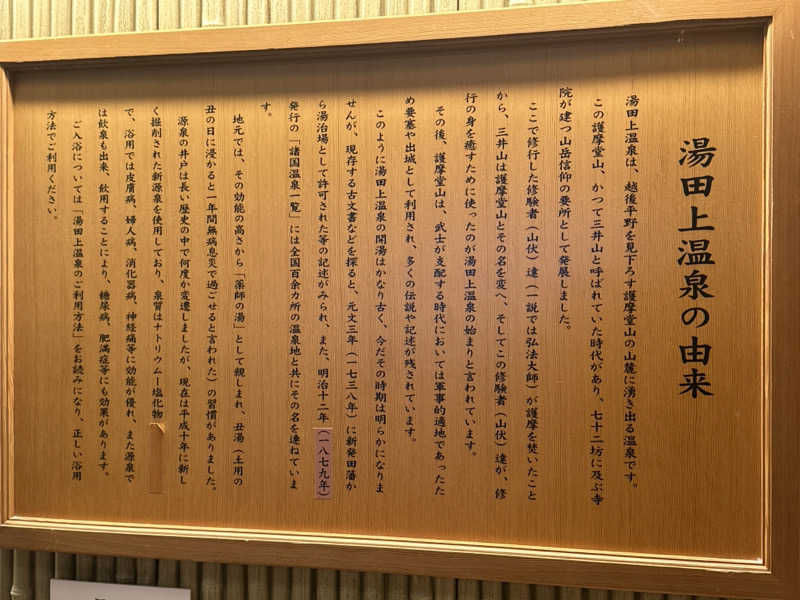 湯田上温泉の由来
湯田上温泉は、越後平野を見下ろす護摩堂山の山麓に湧き出る温泉です。
この護摩堂山、かつて三井山と呼ばれていた時代があり。七十二坊に及ぶ寺
院が建つ山岳信仰の要所として発展しました。
ここで修行した修験者（山伏）達（一説では弘法大師）が護摩を焚いたこと
から、三井山は護摩堂山とその名を変へ、そしてこの修験者（山伏）達が、修
行の身を癒すために使ったのが湯田上温泉の始まりと言われています。
その後、護摩堂山は、武士が支配する時代においては軍事的適地であったた
め要塞や出城として利用され、多くの伝説や記述が残されています。
このように湯田上温泉の開湯はかなり古く、今だその時期は明らかになりま
せんが、現存する古文書などを探ると、元文三年（一七三八年）に新発田藩か
ら湯治場として許可された等の記述がみられ、また、明治十二年（一八七九年）
発行の「諸国温泉一覧」には全国百余カ所の温泉地と共にその名を連ねていま
す。
地元では、その効能の高さから「薬師の湯」として親しまれ、丑湯（土用の
丑の日に浸かると一年間無病息災で過ごせると言われた）の習慣がありました。
源泉の井戸は長い歴史の中で何度か変遷しましたが、現在は平成十年に新し
く掘削された新源泉を使用しており、泉質はナトリウムー塩化物
で、浴用では皮膚病、婦人病、消化器病、神経痛等に効能が優れ、また源泉で
は飲泉も出来、飲用することにより、糖尿病、肥満症等にも効果があります。
ご入浴については「湯田上温泉のご利用方法」をお読みになり、正しい浴用
方法でご利用ください。